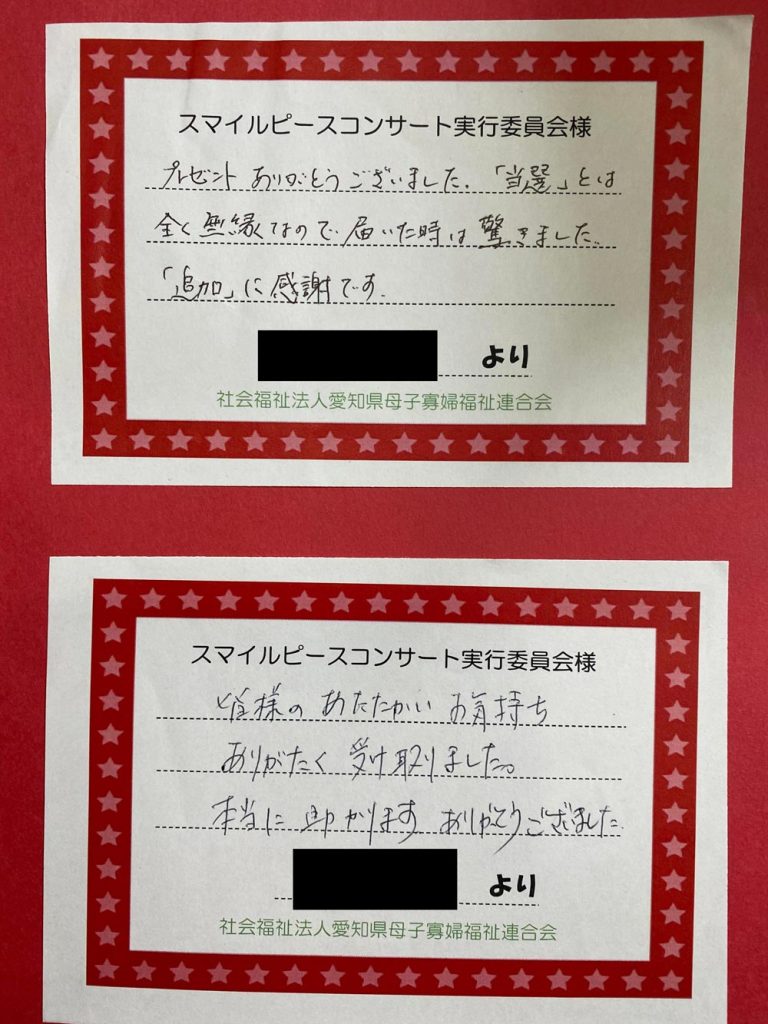 スマイルピースコンサート実行委員会様
プレゼントありがとうございました。「当選」とは
全く無縁なので届いた時は驚きました。
「追加」に感謝です。
より
社会福祉法人愛知県母子寡婦福祉連合会
スマイルピースコンサート実行委員会様
皆様のあたたかいお気持ち
ありがたく受け取りました。
本当に助かります ありがとうございました。
より
社会福祉法人愛知県母子寡婦福祉連合会